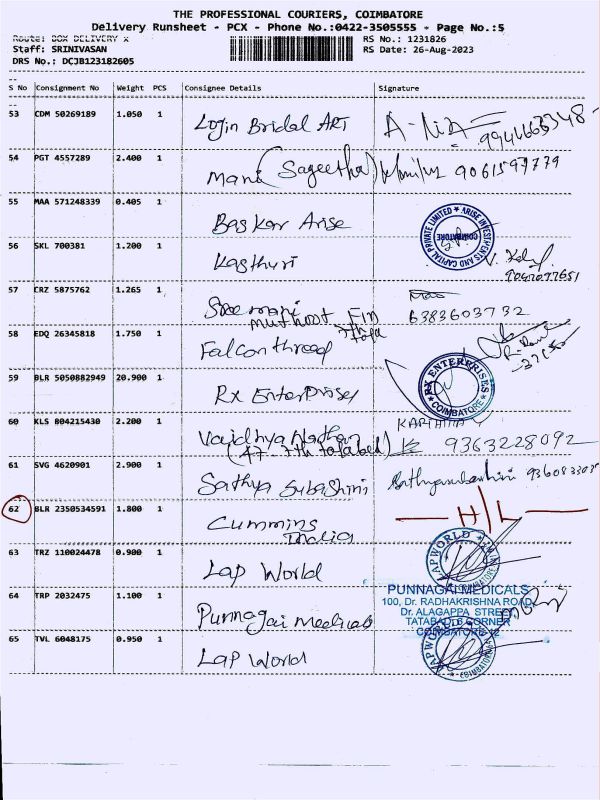 THE PROFESSIONAL COURIERS, COIMBATORE
Delivery Runsheet - PCX - Phone No.:0422-3505555 * Page No.:5
Route: BOX DELIVERY x
RS No.: 1231826
Staff: SRINIVASAN
RS Date: 26-Aug-2023
DRS No.: DCJB123182605
S No Consignment No Weight PCS Consignee Details Signature
53 CDM 50269189 1.050 1
Login Bridal ARt
54 PGT 4557289 2.400 1
Mani (Sageetha) 9061597779
55 MAA 571248339 0.405 1
Baskar Arise
ARISE INVESTMENTS AND CAPITAL PRIVATE LIMITED
COIMBATORE
56 SKL 700381 1.200 1
Kasthuri
57 CRZ 5875762 1.265 1
Sree mani 6383603732
muthoot Fin
58 EDQ 26345818 1.750 1
Falcon thread
59 BLR 5050882949 20.900 1
Rx EnterPrises
RX ENTERPRISES
COIMBATORE
60 KLS 804215430 2.200 1
Vaidhya Nathan 9363228092
(47- 7th tatabad)
61 SVG 4620901 2.900 1
Sathya Subashini Sathyasubashini
62 BLR 2350534591 1.800 1
Cummins H/L
India
63 TRZ 110024478 0.900 1
Lap World
LAP WORLD
64 TRP 2032475 1.100 1
Punnagai Medicals
PUNNAGAI MEDICALS
100, Dr. RADHAKRISHNA ROAD
Dr. ALAGAPPA STREET
TATABAD, CORNER
COIMBATORE-12
65 TVL 6048175 0.950 1
Lap World
LAP WORLD
COIMBATORE